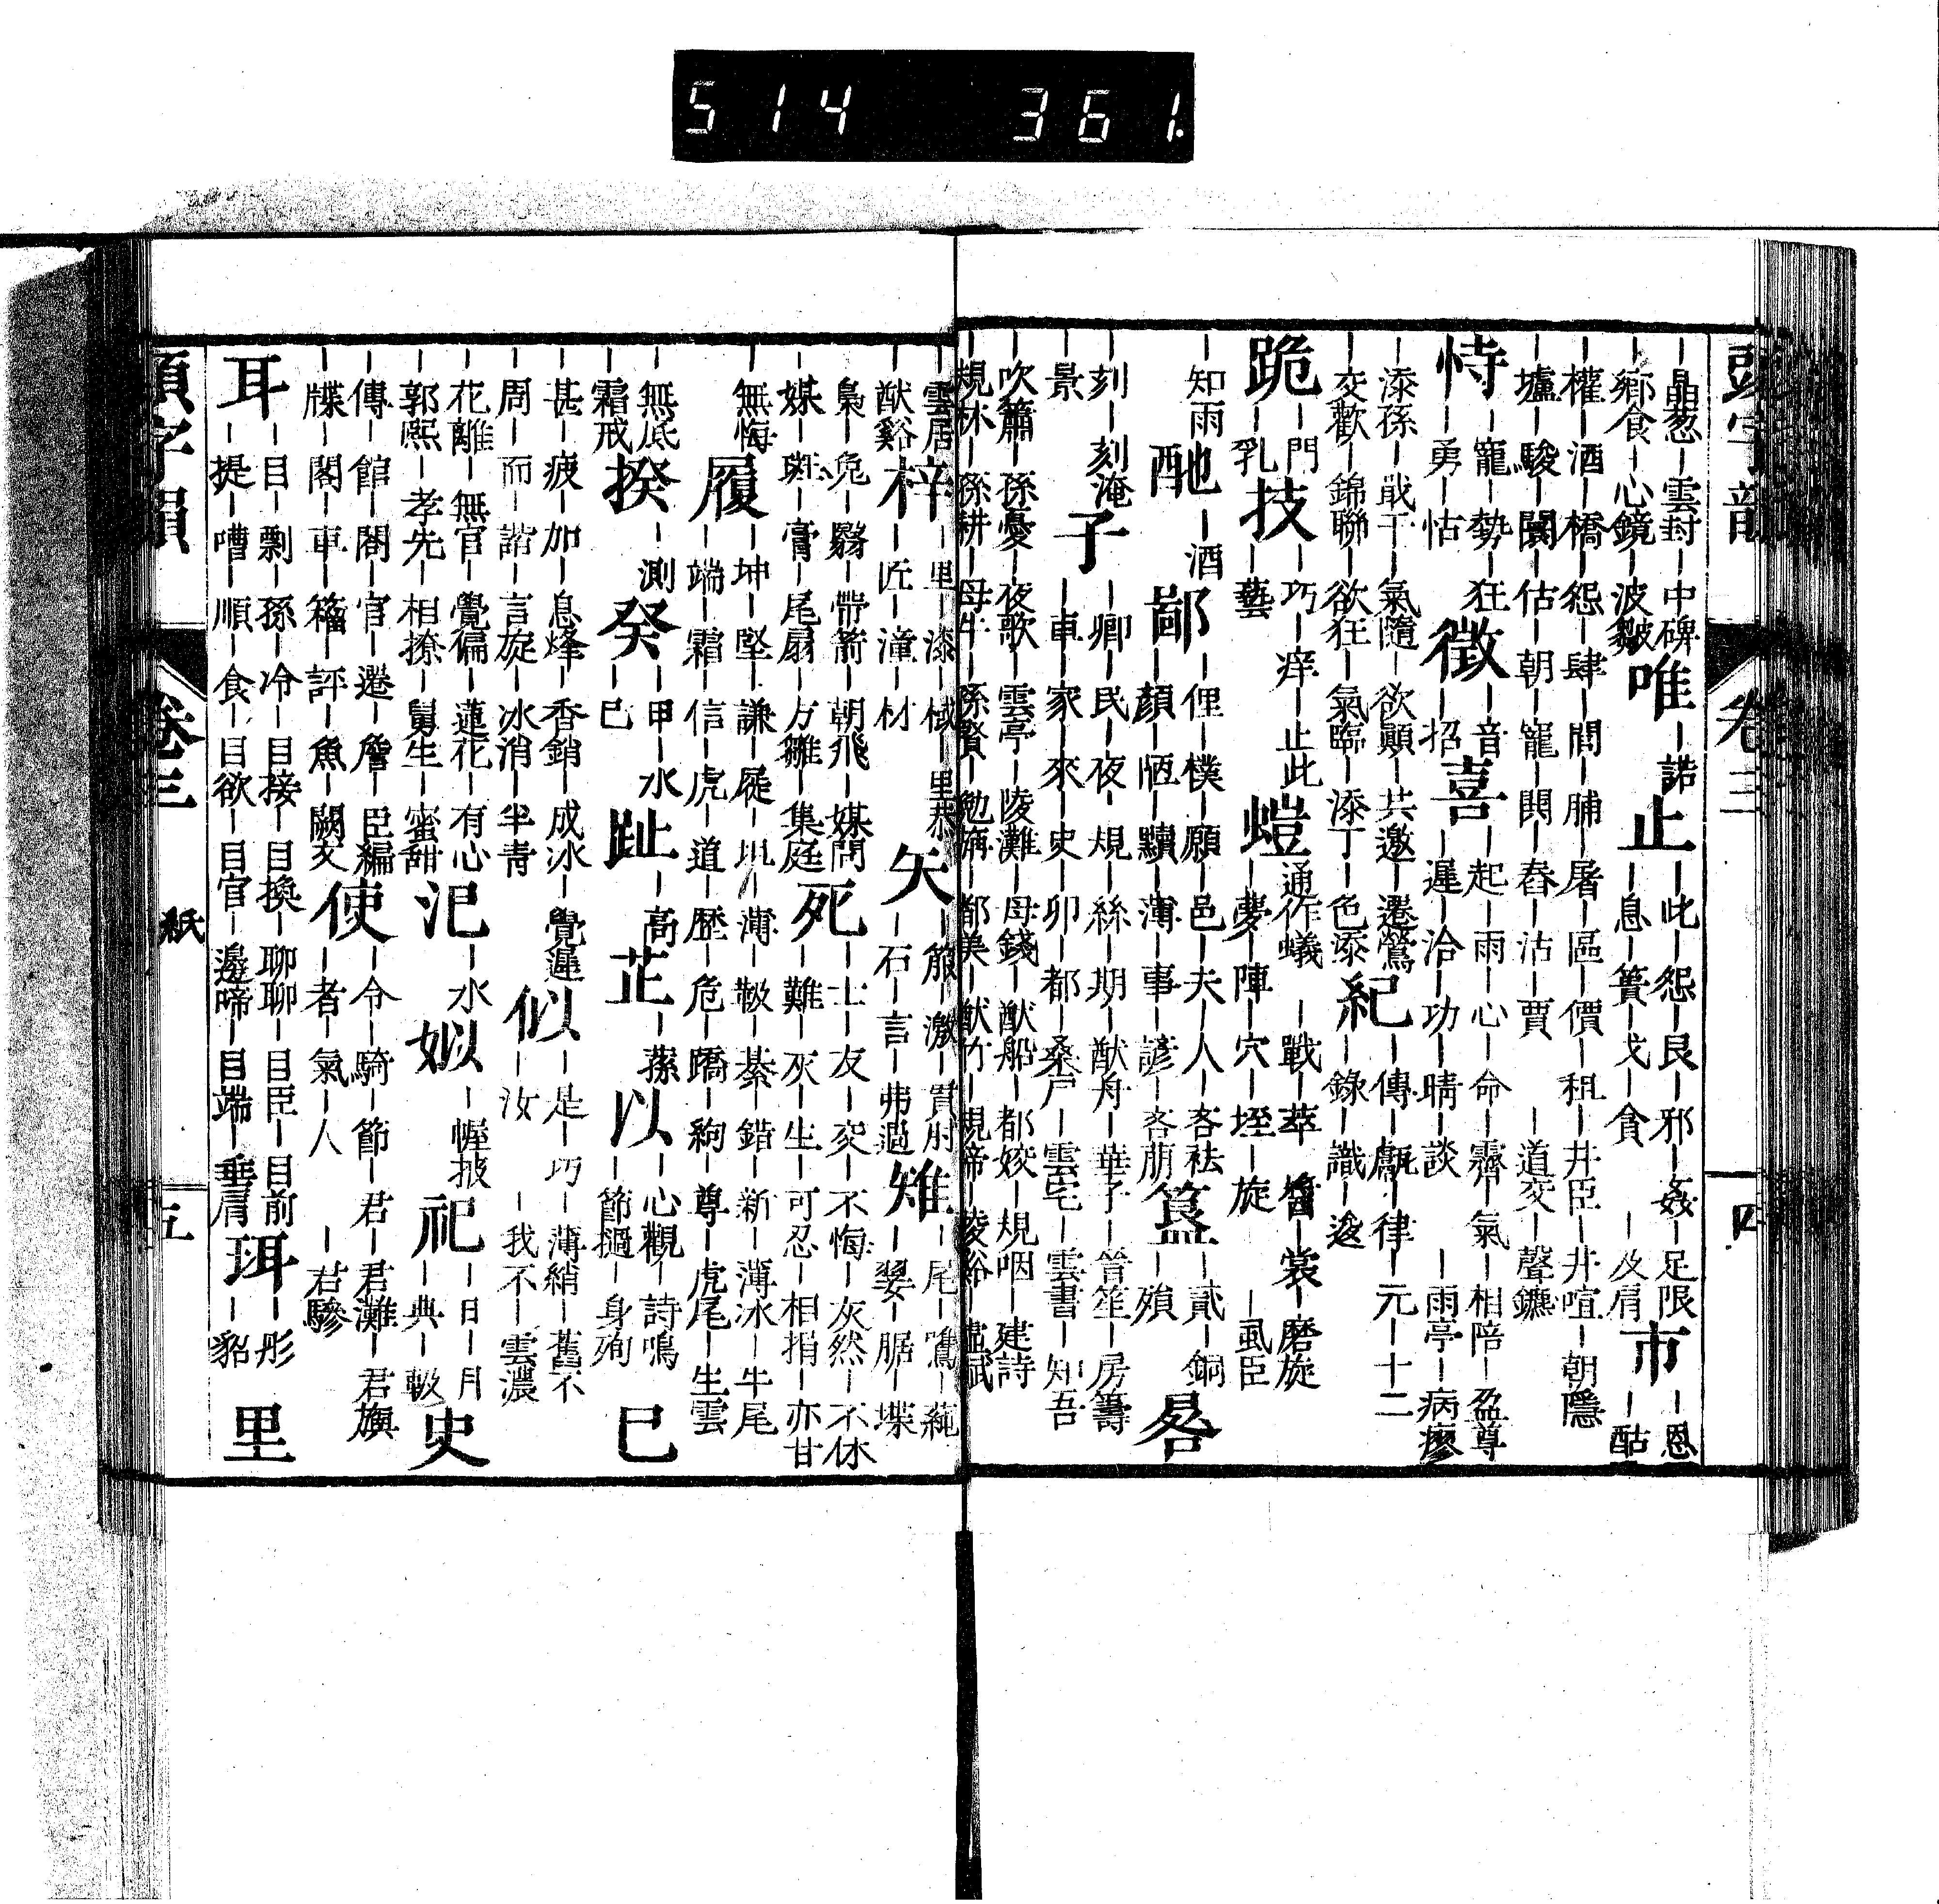 514 361.
頭字韻
卷三
四
｜晶葱｜雲封｜中碑
鄉食｜心鏡｜波皺
唯｜諾
止｜此｜怨｜艮｜邪｜姦｜足限
｜息｜簣｜戈｜貪｜及肩
市｜恩
｜酤
權｜酒｜橋｜怨｜肆｜閻｜脯｜屠｜區｜價｜租｜井臣｜井喧｜朝隱
壚｜駿｜闤｜估｜朝｜寵｜閧｜舂｜沽｜賈｜道交｜聲鑣
恃｜寵｜勢｜狂
｜勇｜怙
徵｜音
｜招
喜｜起｜雨｜心｜命｜霽｜氣｜相陪｜盈尊
｜遲｜洽｜功｜晴｜談｜雨亭｜病瘳
添孫｜戢干｜氣隨｜欲顛｜共邀｜遷鶯
交歡｜錦聯｜欲狂｜氣臨｜添丁｜色添
紀｜傳｜甗｜律｜元｜十二
｜錄｜識｜逡
跪｜門
｜乳
技｜巧｜痒｜止此
｜藝
螘通作蟻｜戰｜萃｜裳｜磨旋
｜夢｜陣｜穴｜垤｜旋｜虱臣
｜知雨
酏｜酒
鄙｜俚｜樸｜願｜邑｜夫｜人｜吝袪
｜顏｜恆｜黷｜薄｜事｜諺｜吝萠
簋｜貳｜銅
｜飧
晷
｜刻｜刻淹
｜景
子｜卿｜民｜夜｜規｜絲｜期｜猷舟｜華子｜晉笙｜房籌
｜車｜家｜來｜史｜卯｜都｜桑戶｜雲宅｜雲書｜知吾
吹簫｜孫憂｜夜歌｜雲亭｜陵灘｜母錢｜猷船｜都姣｜規咽｜建詩
規林｜孫耕｜母牛｜孫賢｜勉旃｜都美｜猷竹｜規啼｜陵裕
｜雲居
｜猷谿
梓｜里｜漆｜棫｜里恭
｜匠｜潼｜材
矢｜箙｜激｜貫肘
｜石｜言｜弗過
雉｜尾｜鷕
｜嬰｜膃｜堞
梟｜兔｜翳｜帶箭｜朝飛｜媒問
媒｜斑｜膏｜尾扇｜方雛｜集庭
死｜士｜友｜交｜不悔｜灰然｜不休
｜難｜灰｜生｜可忍｜相捐｜亦甘
｜無悔
履｜坤｜堅｜謙｜屐｜圯｜薄｜皸｜綦｜錯｜新｜薄冰｜牛尾
｜端｜霜｜信｜虎｜道｜歷｜危｜蹻｜絇｜尊｜虎尾｜生雲
無底
霜戒
揆｜測
癸｜甲｜水
｜巳
趾｜高
芷｜蓀
以｜心觀｜詩鳴
｜節撾｜身殉
已
甚｜疲｜加｜息烽｜香銷｜成冰｜覺遲
周｜而｜諧｜言旋｜冰消｜半青
似｜是｜巧｜薄綃｜舊不
｜汝｜我不｜雲濃
花離｜無官｜覺偏｜蓮花｜有心
郭熙｜孝先｜相撩｜舅生｜蜜甜
汜｜水
姒｜幄披
祀｜日｜月
｜典｜軷
史
傳｜館｜閣｜官｜遷｜詹｜臣編
牒｜閣｜車｜籀｜評｜魚｜闕文
使｜令｜騎｜節｜君｜君灘｜君嶼
｜者｜氣｜人｜君驂
耳｜目｜剽｜孫｜冷｜目接｜目換｜聊聊｜目臣｜目前
｜提｜嘈｜順｜食｜目欲｜目官｜邊啼｜目端｜垂肩
珥｜彤
｜貂
里
頭字韻
卷三
紙
五